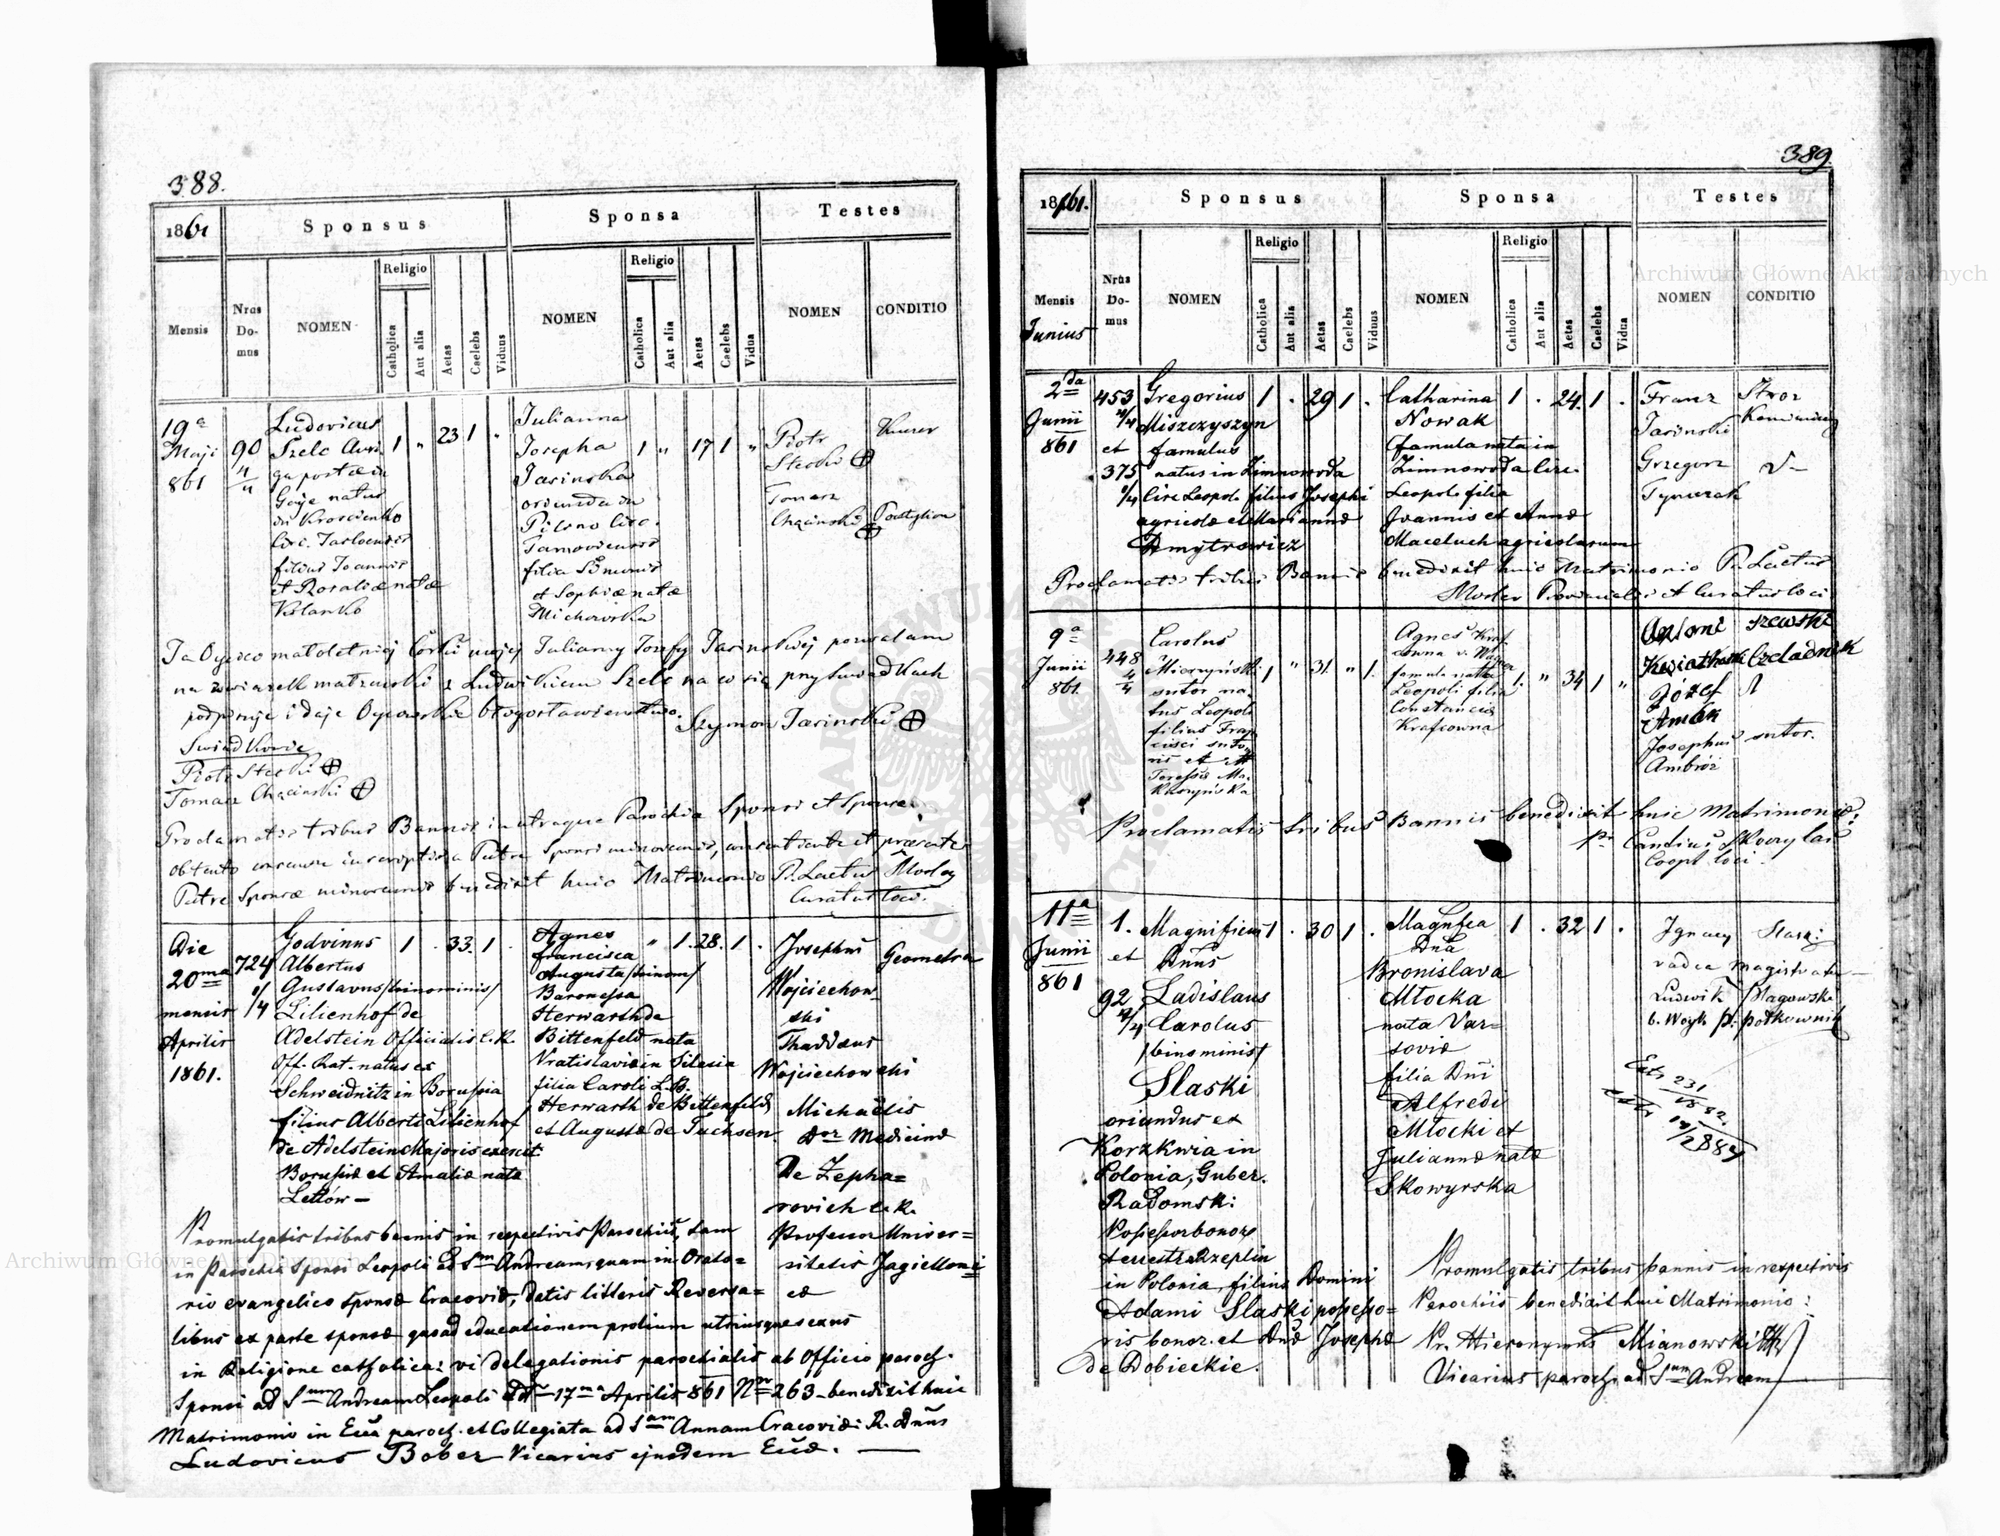 388.
1861
Sponsus
Sponsa
Testes
Mensis
Nrus Domus
NOMEN
Religio
Catholica
Aut alia
Aetas
Caelebs
Viduus
NOMEN
Religio
Catholica
Aut alia
Aetas
Caelebs
Vidua
NOMEN
CONDITIO
19a
Maji
861
90
4/4
Ludovicus
Szelc Auri-
ga postæ in
natus
in Krościenko
Circ. Jasloensis
filius Joannis
et Rosaliæ natæ
1 " 23 1 "
Julianna
Josepha
Jasinska
oriunda in
Pilzno Circ.
Tarnoviensis
filia Simonis
et Sophiæ natæ
Michowska
1 " 17 1 "
Piotr
Stecki ⊕
Tomasz
Chąciński
Postylion
⊕
Ja Ojciec małoletniej Córki mojej Julianny Józefy Jasinskiej pozwalam
na związek matżenski z Ludwikiem Szelc na co się przy świadkach
podpisuje i daje Ojcowskie błogosławieństwo.
Szymon Jasinski ⊕
Świadkowie
Piotr Stecki ⊕
Tomasz Chąciński ⊕
Proclamatis tribus Bannis in utraque Parochia Sponsi et Sponsæ
obtento consensu in scriptis a Patre Sponsi minorennis, consentiente et præsente
Patre Sponsæ minorennis benedixit huic Matrimonio P. Laetus Moslay
Curatus loci.
Die
20ma
mensis
Aprilis
1861.
724
1/4
Godvinus
Albertus
Gustavus /trinominis/
Lilienhof de
Adelstein Officialis C. R.
Off. Rat. natus ex
Schweidnitz in Borussia
filius Alberti Lilienhof
de Adelstein Majoris exercit.
Borussiæ et Amaliæ natæ
Lettow —
1 . 33. 1 .
Agnes
Francisca
Augusta /trinom/
Baronessa
Herwarth de
Bittenfeld nata
Vratislaviæ in Silesia
filia Caroli L. B.
Herwarth de Bittenfeld
et Augustæ de Tuchsen
" 1. 28. 1 .
Josephus
Wojciechow-
ski
Geometra
Thaddæus
Wojciechowski
Michaelis
Dor Medicinæ
De Zepha=
rovich C. R.
Professor Univer=
sitatis Jagielloni
cæ
Promulgatis tribus bannis in respectivis Parochiis, tam
in Parochia Sponsi Leopoli ad Sm Andream, quam in Orato=
rio evangelico sponsæ Cracoviæ, datis litteris Reversa=
libus ex parte sponsæ quoad educationem prolium utriusque sexus
in Religione catholica: vi delegationis parochialis ab Officio paroch.
Sponsi ad Sum Andream Leopoli ddto 17ma Aprilis 861 Nro 263 benedixit huic
Matrimonio in Eccā paroch. et Collegiata ad Sam Annam Cracoviæ: R. Dnus
Ludovicus Bober Vicarius ejusdem Eccæ. —
389.
1861.
Sponsus
Sponsa
Testes
Mensis
Junius
Nrus Domus
NOMEN
Religio
Catholica
Aut alia
Aetas
Caelebs
Viduus
NOMEN
Religio
Catholica
Aut alia
Aetas
Caelebs
Vidua
NOMEN
CONDITIO
2da
Junii
861
453
4/4
et
375
1/4
Gregorius
Miszczyszyn
famulus
natus in Zimnowoda
Circ Leopol. filius Josephi
agricolæ et Mariannæ
Dmytrowicz
1 . 29 1 .
Catharina
Nowak
famula nata in
Zimnowoda Circ.
Leopol. filia
Joannis et Annæ
Maceluch agricolarum
1 . 24. 1 .
Franz
Jasinski
Stroz
Grzegorz
Tynczak
Proclamatis tribus Bannis benedixit huic Matrimonio P. Laetus
Provincialis et Curatus loci
9a
Junii
861.
448
4/4
Carolus
sutor na-
tus Leopoli
filius Fran-
cisci suto-
ris et
1 " 31. " 1.
famula nata
Leopoli filia
Constanciæ
Krafcowna
1. " 34 1 "
Antoni
Kwiatkoski
szewski
Czeladnik
Józef
Josephus
Ambroz
sutor.
Proclamatis tribus Bannis benedixit huic Matrimonio:
Coop. loci.
11a
Junii
861
1.
et
92
4/4
Magnificus
Dnus
Ladislaus
Carolus
/binominis/
Slaski
oriundus ex
Korzkwia in
Polonia, Guber.
Radomsk:
Possessor bonor.
terrestr. Rzeplin
in Polonia, filius Domini
Adami Slaski possesso=
ris bonor. et Dnæ Josephæ
de Dobieckie.
1 . 30 1 .
Magnfca
Dna
Bronislava
Młocka
nata Var=
soviæ
filia Dni
Alfredi
Młocki et
Juliannæ natæ
Skowyrska
1 . 32 1 .
Ignacy Slaski
radca magistratu
Ludwik
b. Wojsk p. półkownik
Promulgatis tribus bannis in respectivis
Parochiis benedixit huic Matrimonio:
Pr. Hieronymus Mianowski
Vicarius paroch. ad Sum Andream
Archiwum Główne Akt Dawnych
Archiwum Główne Akt Dawnych